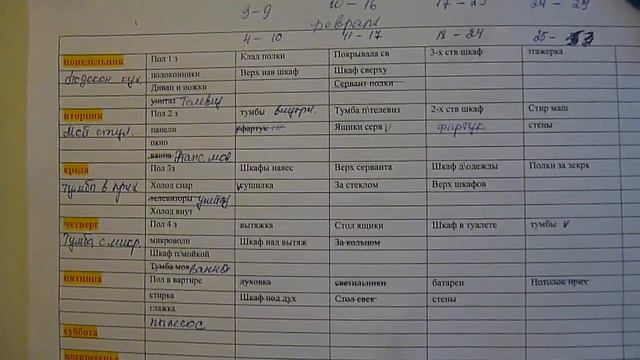 3-9 10-16 17-23 24-29
февраль
4-10 11-17 18-24 25-
понедельник Пол 1 з Клад полки Покрывала св 3-х ств шкаф этажерка
Подокон кух полоконники Верх нав шкаф Шкаф сверху
Диван и ножки Сервант полки
унитаз Телевиз
вторник Пол 2 з тумбы внутри. Тумба п\телевиз 2-х ств шкаф Стир маш
Мой стул. панели фартук Ящики серв фартук стены
окно
ванна
среда Пол 3з Шкафы навес Верх серванта Шкаф д\одежды Полки за зекрк
Тумба в прих Холод снар сушилка За стеклом Верх шкафов
телевизоры унитаз
Холод внут
четверг Пол 4 з вытяжка Стол ящики Шкаф в туалете тумбы
Тумба с микр. микроволн Шкаф над вытяж За кольном
Шкаф п/мойкой
Тумба моя ванна
пятница Пол в вартире духовка светильники батареи Потолок прих
стирка Шкаф под дух Стол свек стены
глажка
пылесос
суббота
воскресенье